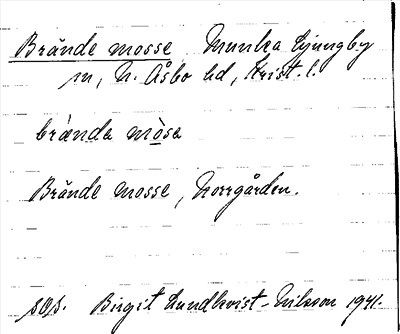 Brände mosse Munka Ljungby
sn, N. Åsbo hd, Krist. l.
brǽnda mòsa
Brände mosse, Norrgården.
sǫs. Birgit Lundkvist-Nilsson 1941.